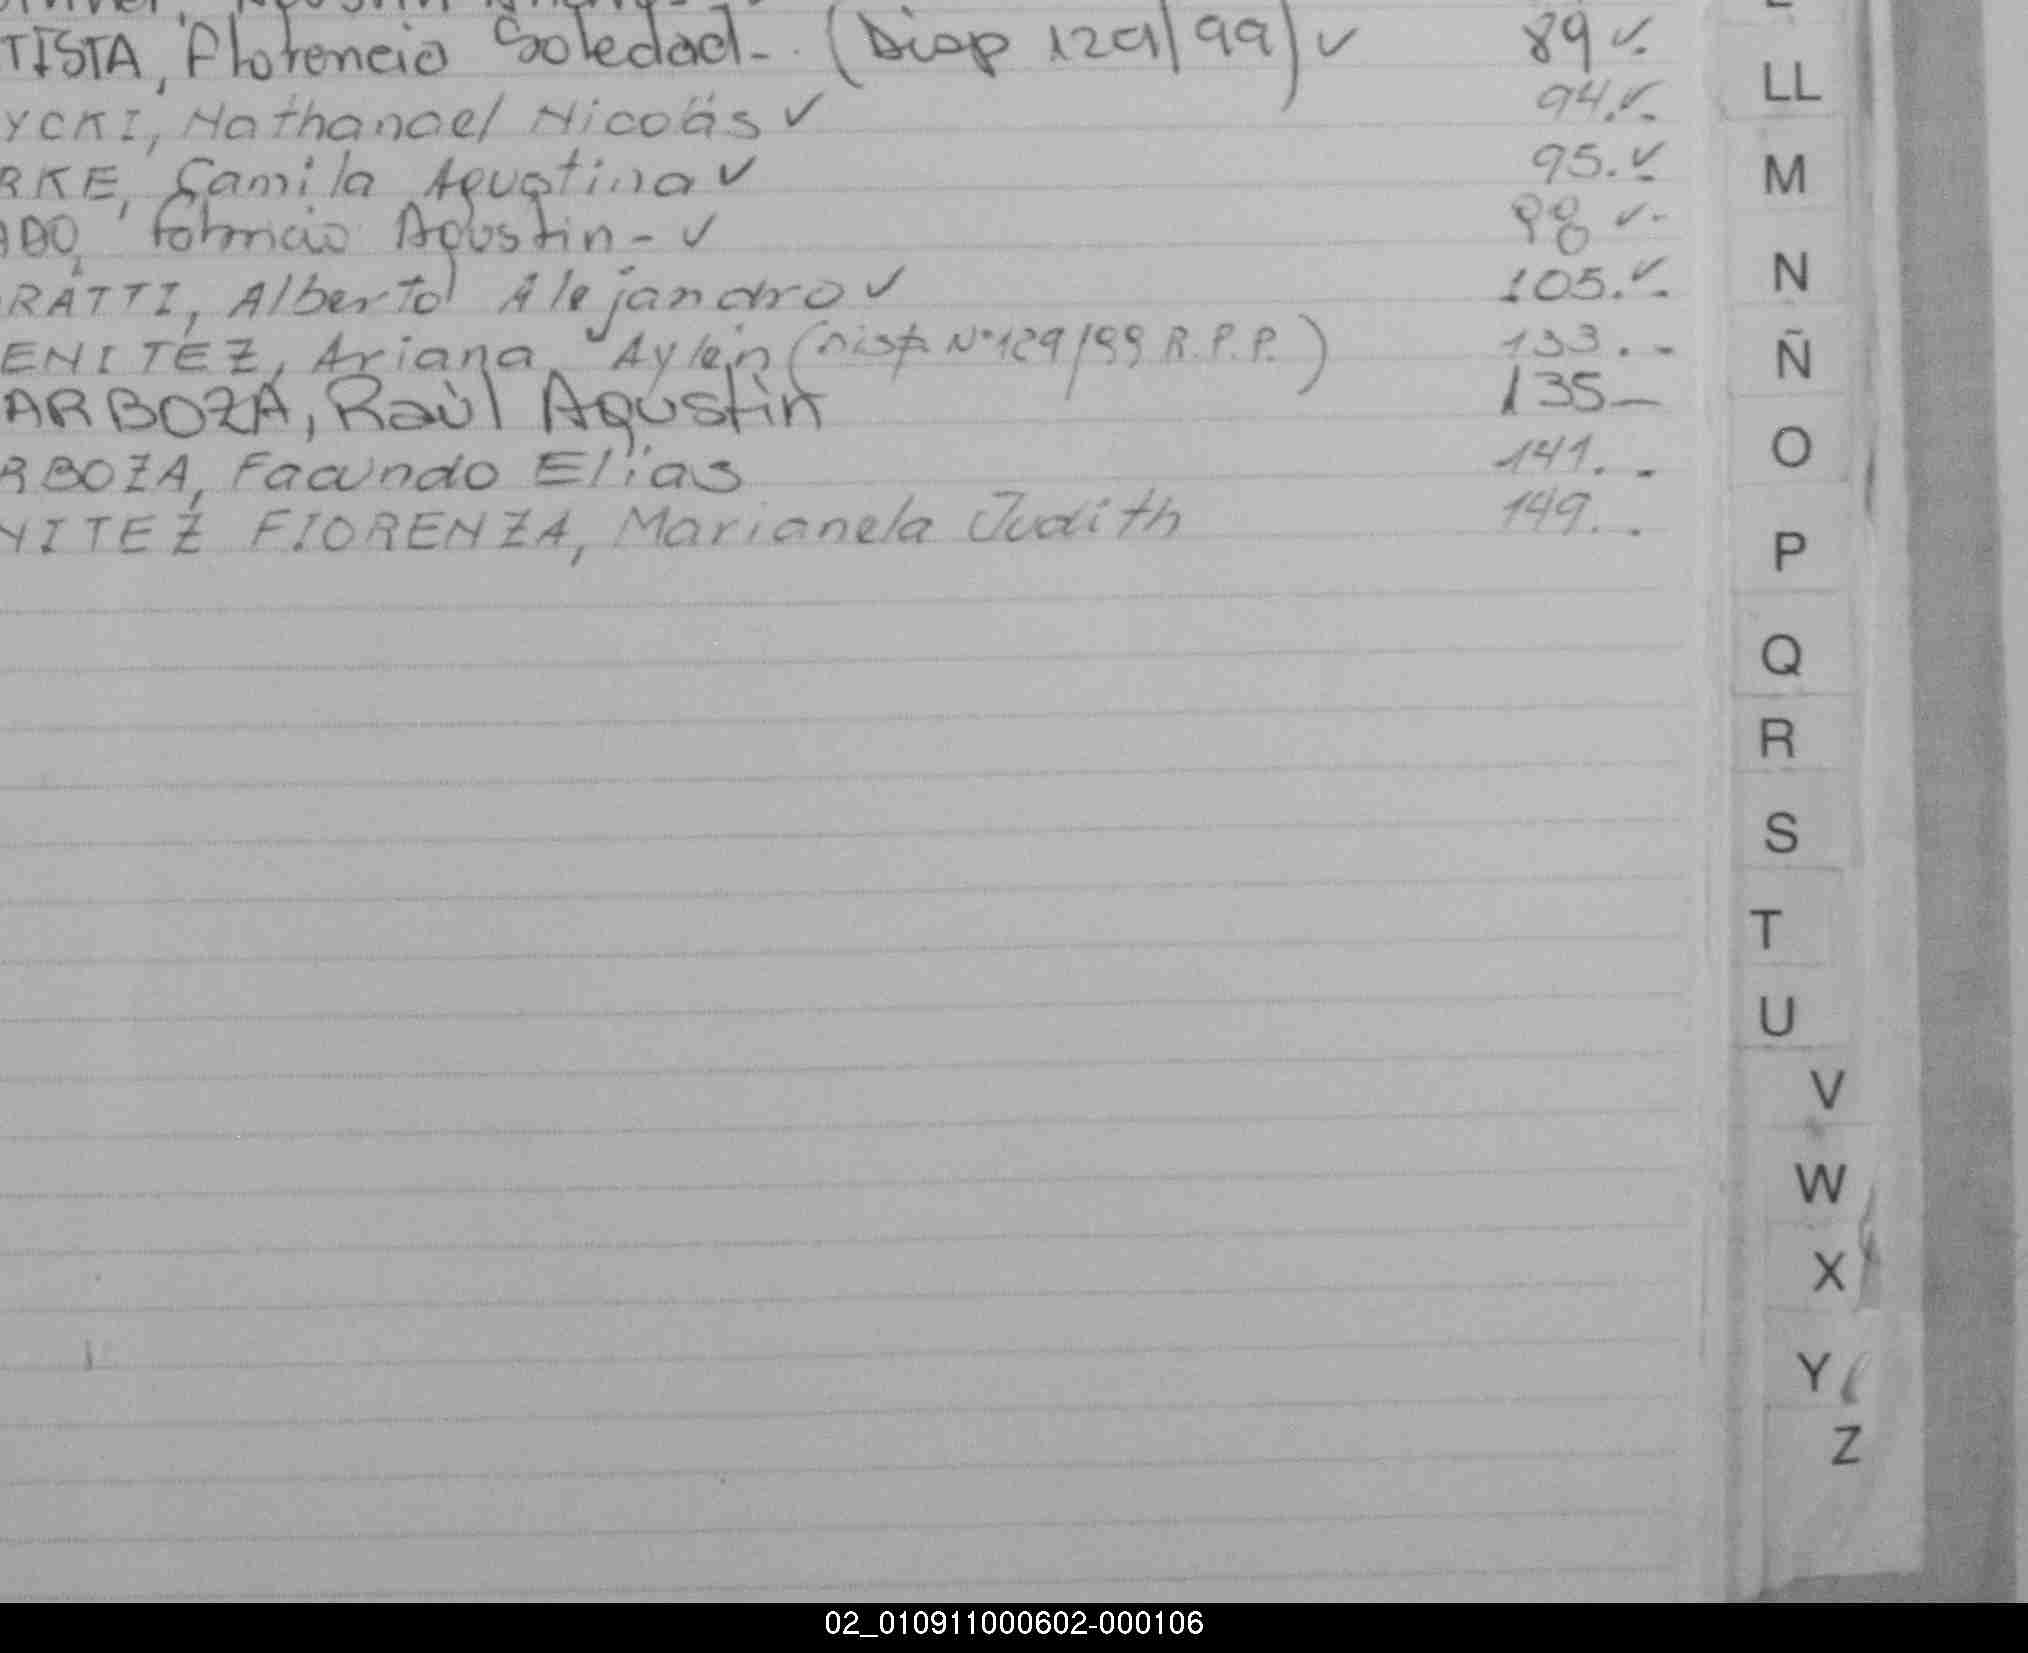 TISTA, Florencia Soledad-. (Disp 129/99) ✓ 89 ✓.
YCKI, Nathanael Nicolás ✓ 94. ✓.
RKE, Camila Agustina ✓ 95. ✓.
ADO, Agustin - ✓ 98 ✓-
RATTI, Alberto Alejandro ✓ 105. ✓.
ENITEZ, Ariana Aylén (Disp. Nº 129/99 R.P.P.) 133. -
ARBOZA, Raúl Agustin 135-
RBOZA, Facundo Elías 141. -
NITEZ FIORENZA, Marianela Judith 149. .
LL
M
N
Ñ
O
P
Q
R
S
T
U
V
W
X
Y
Z
02_010911000602-000106